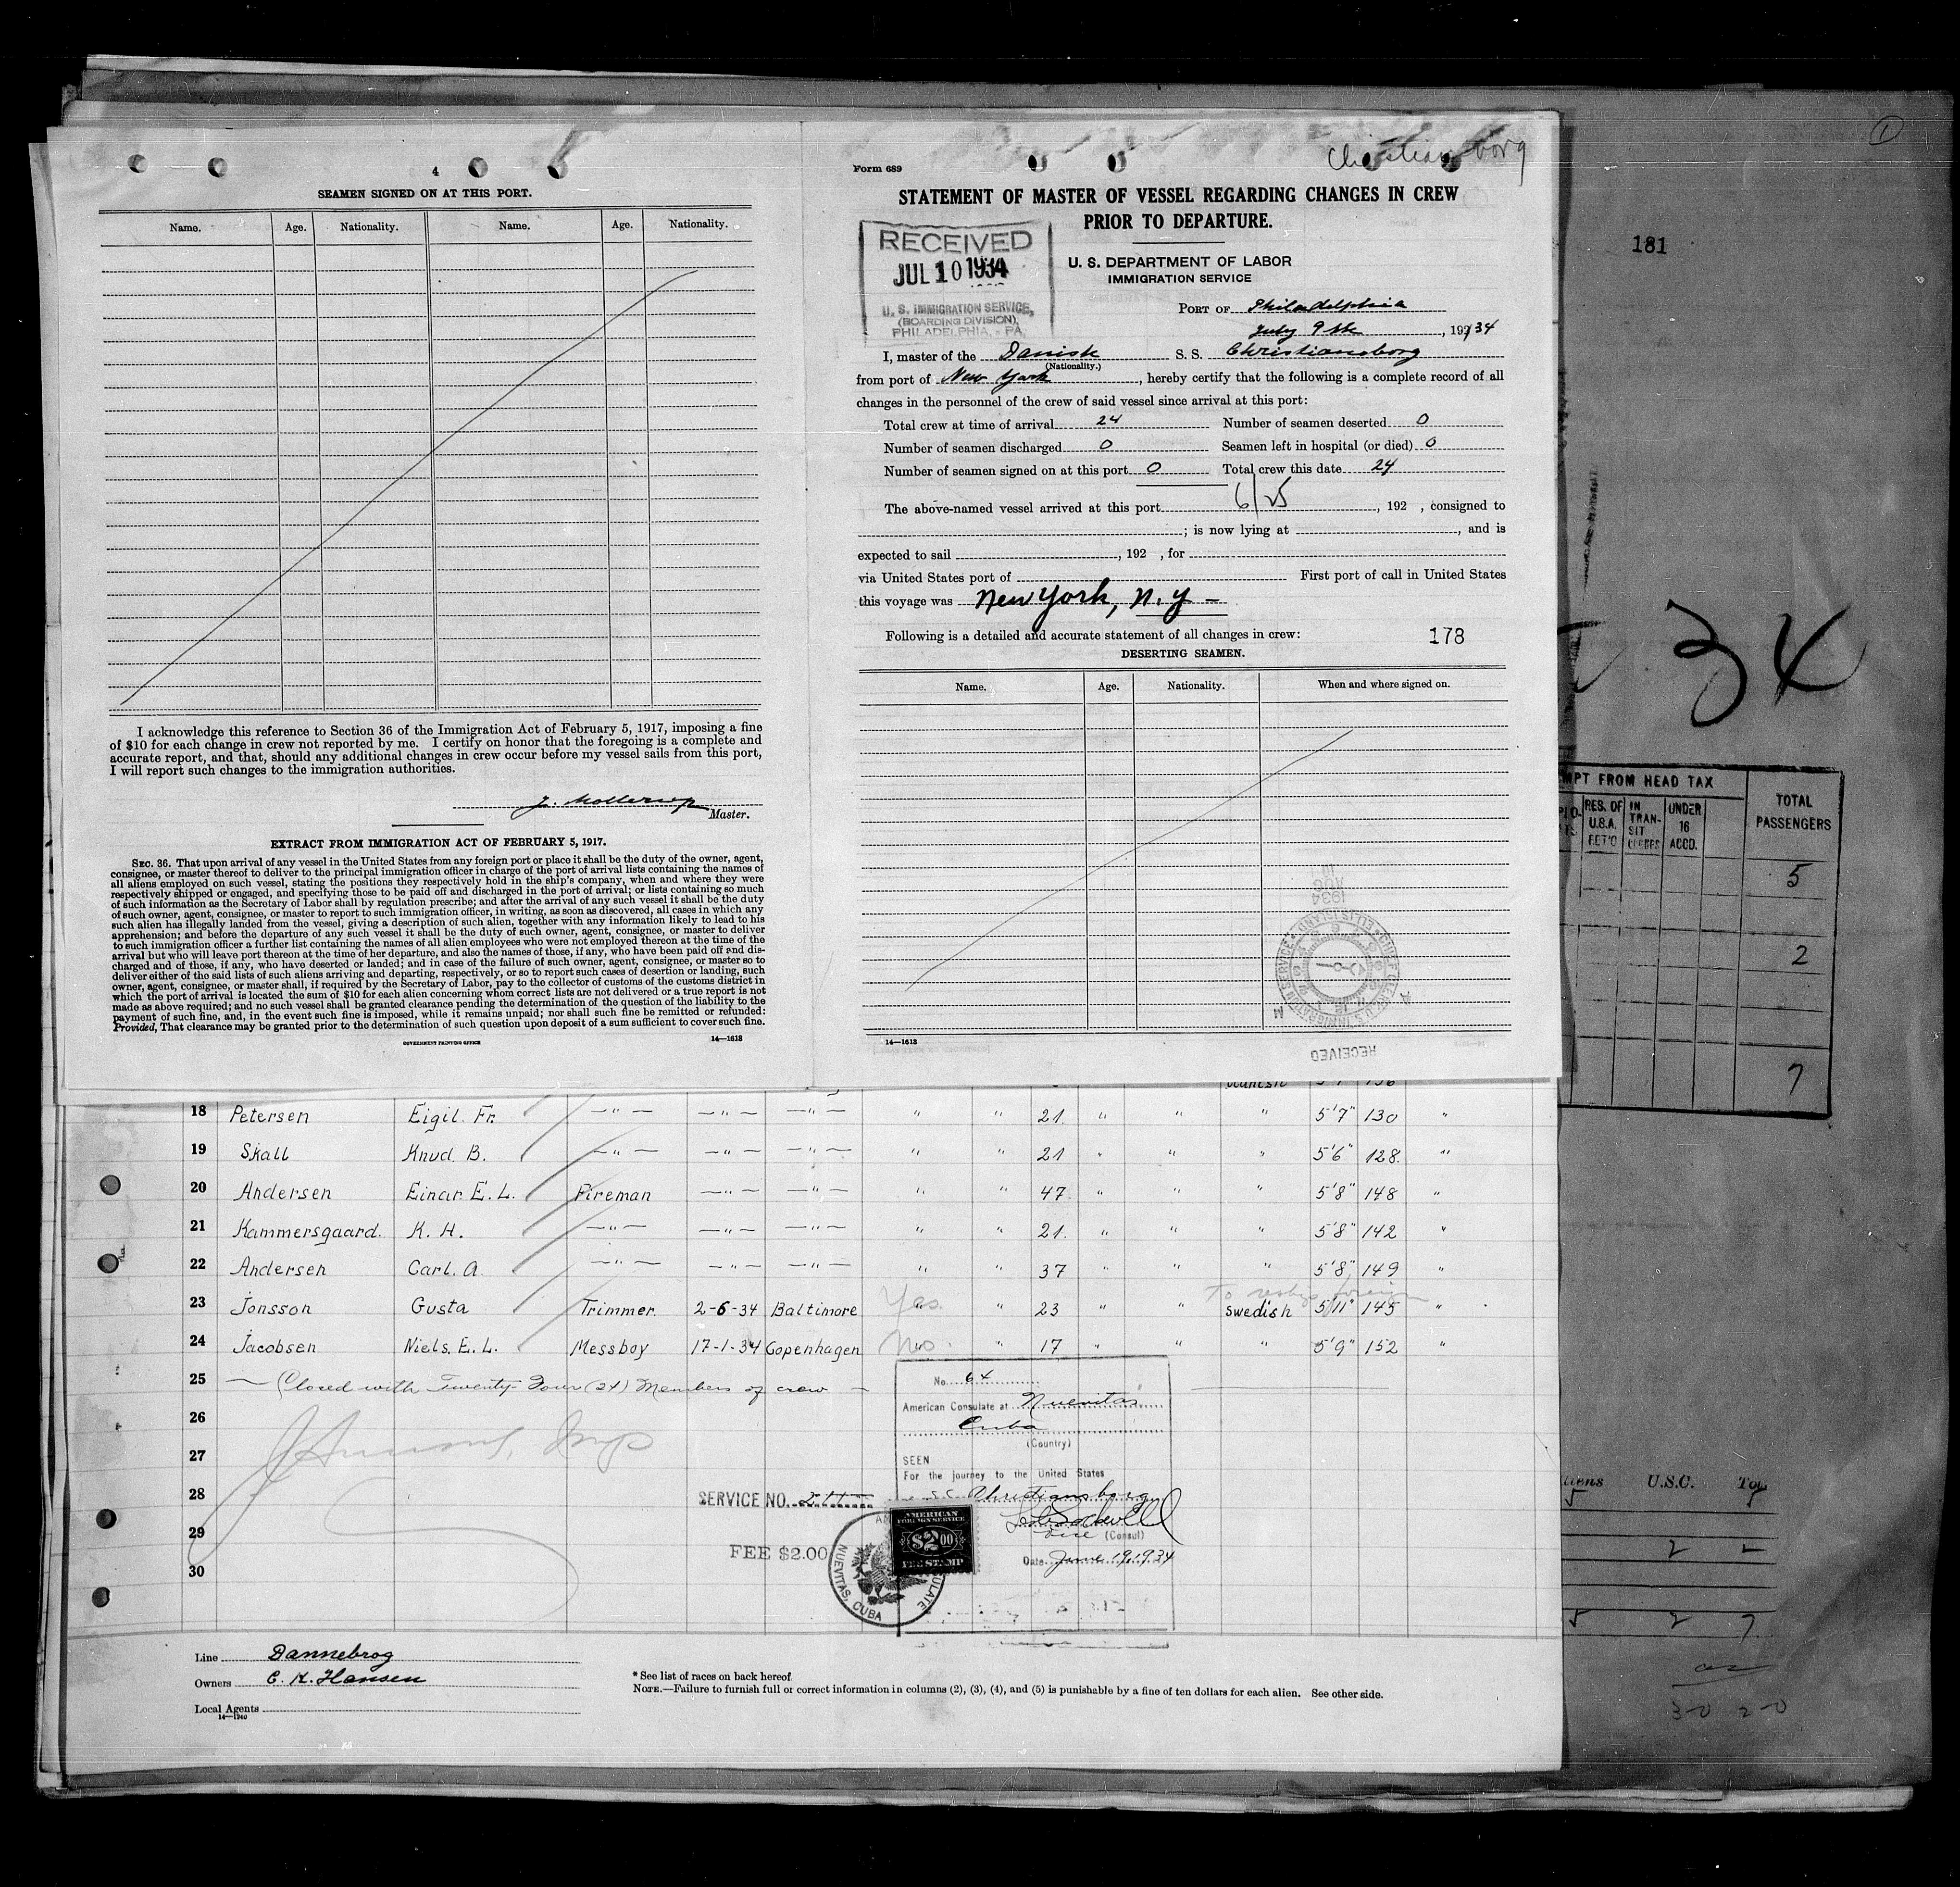 4
SEAMEN SIGNED ON AT THIS PORT.
Name. Age. Nationality. Name. Age. Nationality.
I acknowledge this reference to Section 36 of the Immigration Act of February 5, 1917, imposing a fine
of $10 for each change in crew not reported by me. I certify on honor that the foregoing is a complete and
accurate report, and that, should any additional changes in crew occur before my vessel sails from this port,
I will report such changes to the immigration authorities.
J. Mollerup
Master.
EXTRACT FROM IMMIGRATION ACT OF FEBRUARY 5, 1917.
SEC. 36. That upon arrival of any vessel in the United States from any foreign port or place it shall be the duty of the owner, agent,
consignee, or master thereof to deliver to the principal immigration officer in charge of the port of arrival lists containing the names of
all aliens employed on such vessel, stating the positions they respectively hold in the ship's company, when and where they were
respectively shipped or engaged, and specifying those to be paid off and discharged in the port of arrival; or lists containing so much
of such information as the Secretary of Labor shall by regulation prescribe; and after the arrival of any such vessel it shall be the duty
of such owner, agent, consignee, or master to report to such immigration officer, in writing, as soon as discovered, all cases in which any
such alien has illegally landed from the vessel, giving a description of such alien, together with any information likely to lead to his
apprehension; and before the departure of any such vessel it shall be the duty of such owner, agent, consignee, or master to deliver
to such immigration officer a further list containing the names of all alien employees who were not employed thereon at the time of the
arrival but who will leave port thereon at the time of her departure, and also the names of those, if any, who have been paid off and dis-
charged and of those, if any, who have deserted or landed; and in case of the failure of such owner, agent, consignee, or master so to
deliver either of the said lists of such aliens arriving and departing, respectively, or so to report such cases of desertion or landing, such
owner, agent, consignee, or master shall, if required by the Secretary of Labor, pay to the collector of customs of the customs district in
which the port of arrival is located the sum of $10 for each alien concerning whom correct lists are not delivered or a true report is not
made as above required; and no such vessel shall be granted clearance pending the determination of the question of the liability to the
payment of such fine, and, in the event such fine is imposed, while it remains unpaid; nor shall such fine be remitted or refunded:
Provided, That clearance may be granted prior to the determination of such question upon deposit of a sum sufficient to cover such fine.
GOVERNMENT PRINTING OFFICE 14—1613
Christiansborg
Form 689
STATEMENT OF MASTER OF VESSEL REGARDING CHANGES IN CREW
PRIOR TO DEPARTURE.
RECEIVED
JUL 10 1934
U. S. IMMIGRATION SERVICE,
(BOARDING DIVISION),
PHILADELPHIA, - PA.
U. S. DEPARTMENT OF LABOR
IMMIGRATION SERVICE
PORT OF Philadelphia
July 9th, 1934
I, master of the Danish S. S. Christiansborg
(Nationality.)
from port of New York, hereby certify that the following is a complete record of all
changes in the personnel of the crew of said vessel since arrival at this port:
Total crew at time of arrival 24 Number of seamen deserted 0
Number of seamen discharged 0 Seamen left in hospital (or died) 0
Number of seamen signed on at this port 0 Total crew this date 24
The above-named vessel arrived at this port 6/25, 192 , consigned to
; is now lying at , and is
expected to sail , 192 , for
via United States port of First port of call in United States
this voyage was New York, N.Y —
Following is a detailed and accurate statement of all changes in crew: 178
DESERTING SEAMEN.
Name. Age. Nationality. When and where signed on.
CHIEF CLERK U.S. IMMIGRATION SERVICE ELLIS ISLAND
1934
RECEIVED
14—1613
18 Petersen Eigil. Fr. —"— —"— —"— " " 21. " " " 5'7" 130 "
19 Skall Knud. B. —"— —"— —"— " " 21 " " " 5'6" 128. "
20 Andersen Einar E. L. Fireman —"— —"— " " 47. " " " 5'8" 148 "
21 Kammersgaard. K. H. —"— —"— —"— " " 21. " " " 5'8" 142 "
22 Andersen Carl. A. —"— —"— —"— " " 37 " " " 5'8" 149 "
23 Jonsson Gusta Trimmer. 2-6-34 Baltimore Yes. " 23 " " Swedish 5'11" 145 "
24 Jacobsen Niels. E. L. Messboy 17-1-34 Copenhagen No. " 17 " " " 5'9" 152 "
25 — Closed with Twenty-Four (24) Members of crew —
26
27
28
29
30
No. 64
American Consulate at Nuevitas
Cuba
(Country)
SEEN
For the journey to the United States
S.S. Christiansborg
Vice (Consul)
Date June 19, 1934
SERVICE NO.
FEE $2.00
AMERICAN
FOREIGN SERVICE
$2.00
FEE STAMP
NUEVITAS, CUBA
Line Dannebrog
Owners C. K. Hansen
Local Agents
14—1240
* See list of races on back hereof.
NOTE.—Failure to furnish full or correct information in columns (2), (3), (4), and (5) is punishable by a fine of ten dollars for each alien. See other side.
1
181
34
MPT FROM HEAD TAX
RES. OF U.S.A. RET'D IN TRANSIT UNDER 16 ACCD. TOTAL PASSENGERS
5
2
7
liens U.S.C. Tot
5
2
5 2 7
30 20